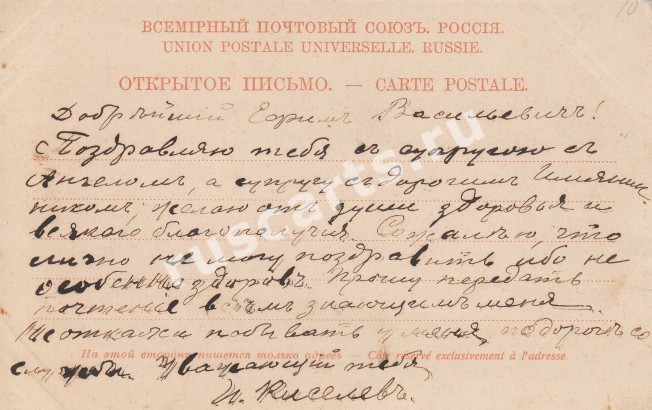 ВСЕМІРНЫЙ ПОЧТОВЫЙ СОЮЗЪ. РОССІЯ.
UNION POSTALE UNIVERSELLE. RUSSIE.
ОТКРЫТОЕ ПИСЬМО. — CARTE POSTALE.
Добрѣйшій Ефимъ Васильевичъ!
Поздравляю тебя съ супругою съ
Ангеломъ, а супругу съ дорогимъ Имянин-
никомъ, желаю отъ души здоровья и
всякаго благополучія. Сожалѣю, что
лично не могу поздравить ибо не
особенно здоровъ. Прошу передать
почтеніе всѣмъ знающимъ меня.
Не откажи побывать у меня, по дорогѣ со
На этой сторонѣ пишется только адресъ — Côté réservé exclusivement à l'adresse.
службы. Уважающій тебя
И. Киселевъ.
ruscarts.ru